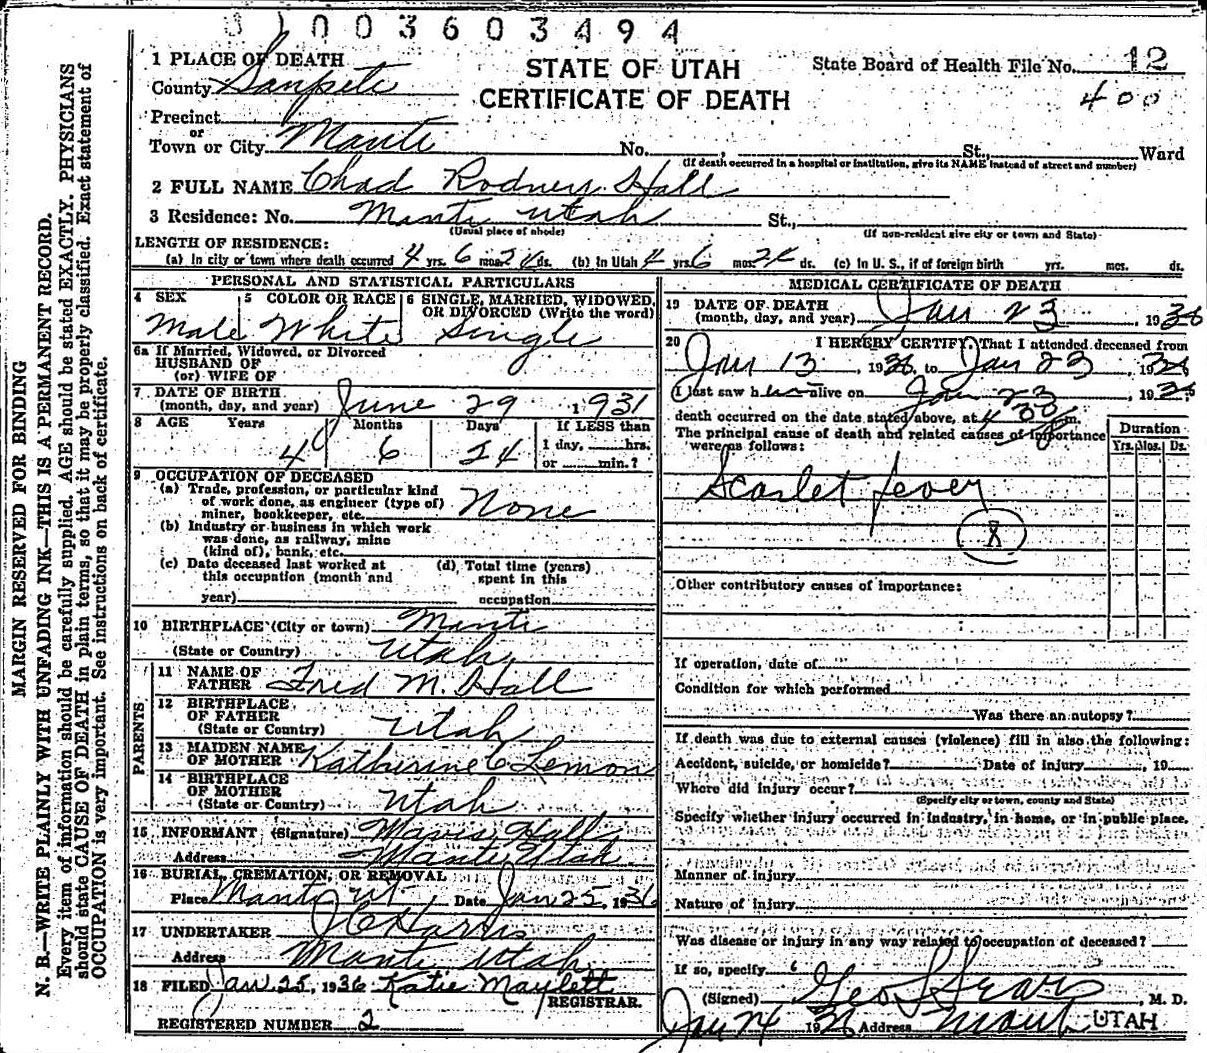 003603494
1 PLACE OF DEATH
STATE OF UTAH
CERTIFICATE OF DEATH
State Board of Health File No. 12
400
County Sanpete
Precinct
or
Town or City Manti No. , St., Ward
(If death occurred in a hospital or institution, give its NAME instead of street and number)
2 FULL NAME Chad Rodney Hall
3 Residence: No. Manti Utah St.,
(Usual place of abode) (If non-resident give city or town and State)
LENGTH OF RESIDENCE:
(a) In city or town where death occurred 4 yrs. 6 mos. 24 ds. (b) In Utah 4 yrs 6 mos 24 ds. (c) In U. S., if of foreign birth yrs. mos. ds.
PERSONAL AND STATISTICAL PARTICULARS
4 SEX 5 COLOR OR RACE 6 SINGLE, MARRIED, WIDOWED, OR DIVORCED (Write the word)
Male White Single
6a If Married, Widowed, or Divorced
HUSBAND OF
(or) WIFE OF
7 DATE OF BIRTH
(month, day, and year) June 29 1931
8 AGE Years Months Days If LESS than
1 day, hrs.
4 6 24 or min.?
9 OCCUPATION OF DECEASED
(a) Trade, profession, or particular kind
of work done, as engineer (type of)
miner, bookkeeper, etc. None
(b) Industry or business in which work
was done, as railway, mine
(kind of), bank, etc.
(c) Date deceased last worked at
this occupation (month and
year)
(d) Total time (years)
spent in this
occupation
10 BIRTHPLACE (City or town) Manti
(State or Country) Utah
PARENTS
11 NAME OF
FATHER Fred M. Hall
12 BIRTHPLACE
OF FATHER
(State or Country) Utah
13 MAIDEN NAME
OF MOTHER Katherine C Lemon
14 BIRTHPLACE
OF MOTHER
(State or Country) Utah
15 INFORMANT (Signature) Mavis Hall
Address Manti, Utah
16 BURIAL, CREMATION, OR REMOVAL
Place Manti Ut Date Jan 25, 1936
17 UNDERTAKER J C Harris
Address Manti Utah
18 FILED Jan 25, 1936 Katie Maylett
REGISTRAR.
REGISTERED NUMBER 2
MEDICAL CERTIFICATE OF DEATH
19 DATE OF DEATH
(month, day, and year) Jan 23, 1936
20 I HEREBY CERTIFY, That I attended deceased from
Jan 13, 1936, to Jan 23, 1936
I last saw him alive on Jan 23, 1936
death occurred on the date stated above, at 4 m.
The principal cause of death and related causes of importance
were as follows:
Duration
Yrs. Mos. Ds.
Scarlet fever
8
Other contributory causes of importance:
If operation, date of
Condition for which performed
Was there an autopsy?
If death was due to external causes (violence) fill in also the following:
Accident, suicide, or homicide? Date of injury , 19
Where did injury occur?
(Specify city or town, county and State)
Specify whether injury occurred in industry, in home, or in public place.
Manner of injury
Nature of injury
Was disease or injury in any way related to occupation of deceased?
If so, specify
(Signed) Geo L Sears, M. D.
Jan 24 1936 Address Manti UTAH
MARGIN RESERVED FOR BINDING
N. B.—WRITE PLAINLY WITH UNFADING INK—THIS IS A PERMANENT RECORD.
Every item of information should be carefully supplied. AGE should be stated EXACTLY. PHYSICIANS
should state CAUSE OF DEATH in plain terms, so that it may be properly classified. Exact statement of
OCCUPATION is very important. See instructions on back of certificate.